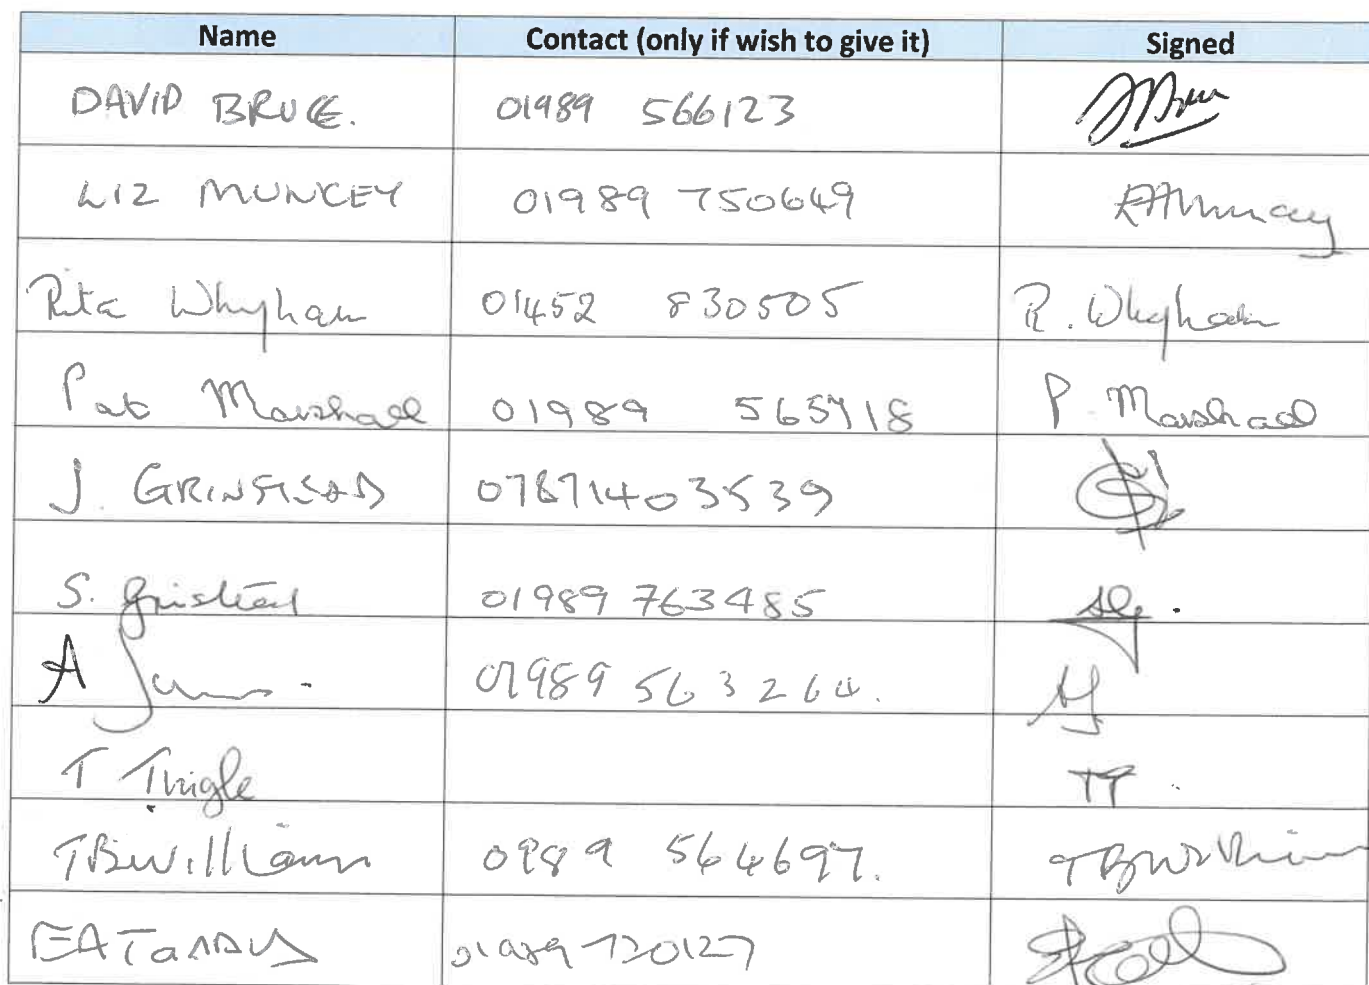 Name Contact (only if wish to give it) Signed
DAVID BRUCE. 01989 566123
LIZ MUNCEY 01989 750649
Rita Whyham 01452 830505 R. Whyham
Pat Marshall 01989 565718 P. Marshall
J. GRINSTEAD 07871403539
S. Grinstead 01989 763485
A 01989 563264.
T Tingle TT.
TBWilliams 01989 564697. TBWilliams
EA 01989 720127